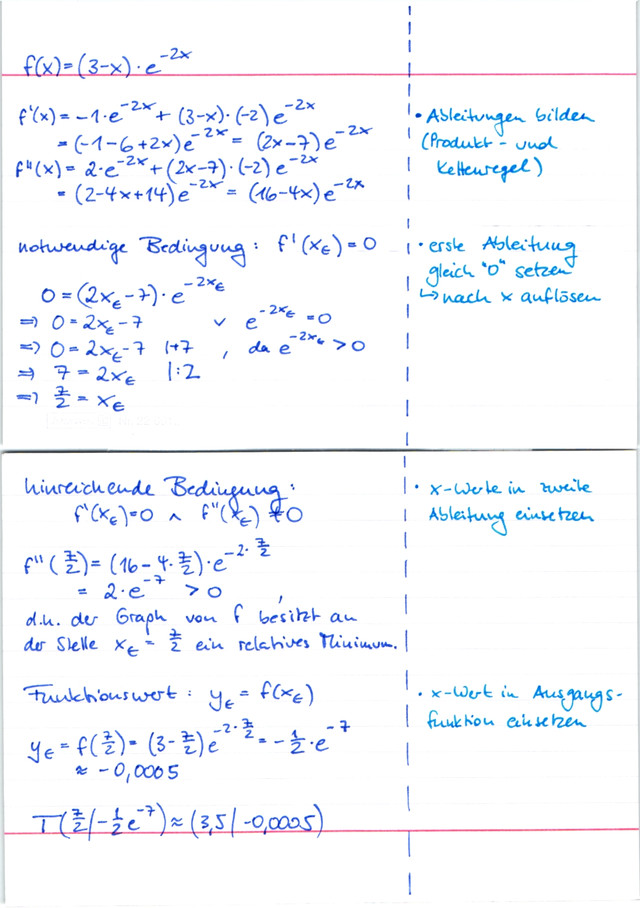 f(x) = (3-x) · e^{-2x}
f'(x) = -1·e^{-2x} + (3-x)·(-2) e^{-2x}
= (-1-6+2x) e^{-2x} = (2x-7) e^{-2x}
f''(x) = 2·e^{-2x} + (2x-7)·(-2) e^{-2x}
= (2-4x+14) e^{-2x} = (16-4x) e^{-2x}
• Ableitungen bilden
(Produkt- und
Kettenregel)
notwendige Bedingung: f'(x_E) = 0
0 = (2x_E-7) · e^{-2x_E}
=> 0 = 2x_E-7 ∨ e^{-2x_E} = 0
=> 0 = 2x_E-7 |+7 , da e^{-2x_E} > 0
=> 7 = 2x_E |:2
=> 7/2 = x_E
• erste Ableitung
gleich "0" setzen
↳ nach x auflösen
hinreichende Bedingung:
f'(x_E)=0 ∧ f''(x_E) ≠ 0
f''(7/2) = (16-4·7/2)·e^{-2·7/2}
= 2·e^{-7} > 0 ,
d.h. der Graph von f besitzt an
der Stelle x_E = 7/2 ein relatives Minimum.
• x-Werte in zweite
Ableitung einsetzen
Funktionswert: y_E = f(x_E)
y_E = f(7/2) = (3-7/2) e^{-2·7/2} = -1/2·e^{-7}
≈ -0,0005
T(7/2 | -1/2 e^{-7}) ≈ (3,5 | -0,0005)
• x-Wert in Ausgangs-
funktion einsetzen